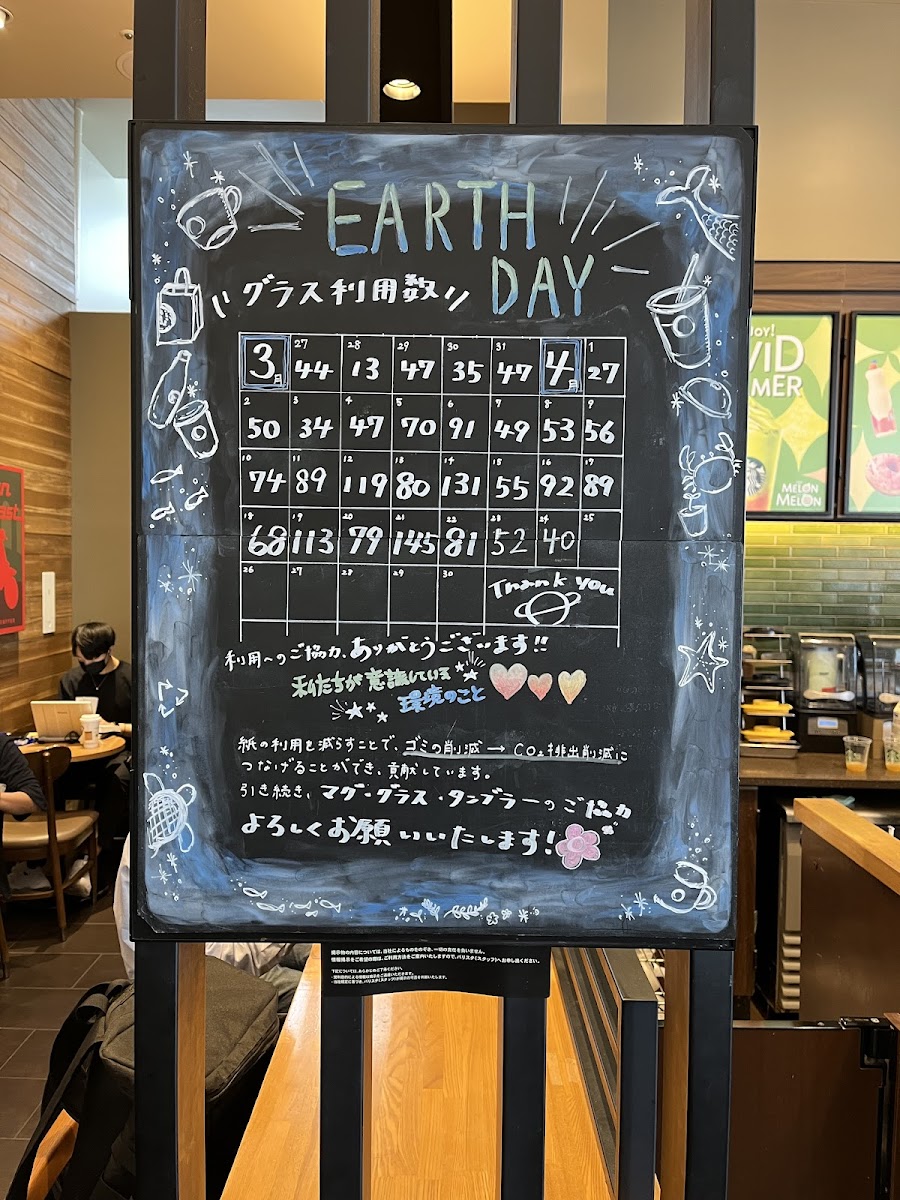 EARTH
DAY
グラス利用数
3月 27 44 28 13 29 47 30 35 31 47 4月 1 27
2 50 3 34 4 47 5 70 6 91 7 49 8 53 9 56
10 74 11 89 12 119 13 80 14 131 15 55 16 92 17 89
18 68 19 113 20 79 21 145 22 81 23 52 24 40 25
26 27 28 29 30 Thank you
利用へのご協力、ありがとうございます!!
私たちが意識している
環境のこと
紙の利用を減らすことで、ゴミの削減→CO2排出削減に
つなげることができ、貢献しています。
引き続き、マグ・グラス・タンブラーのご協力
よろしくお願いいたします!
JOY!
ViD
MER
MELON
MELON